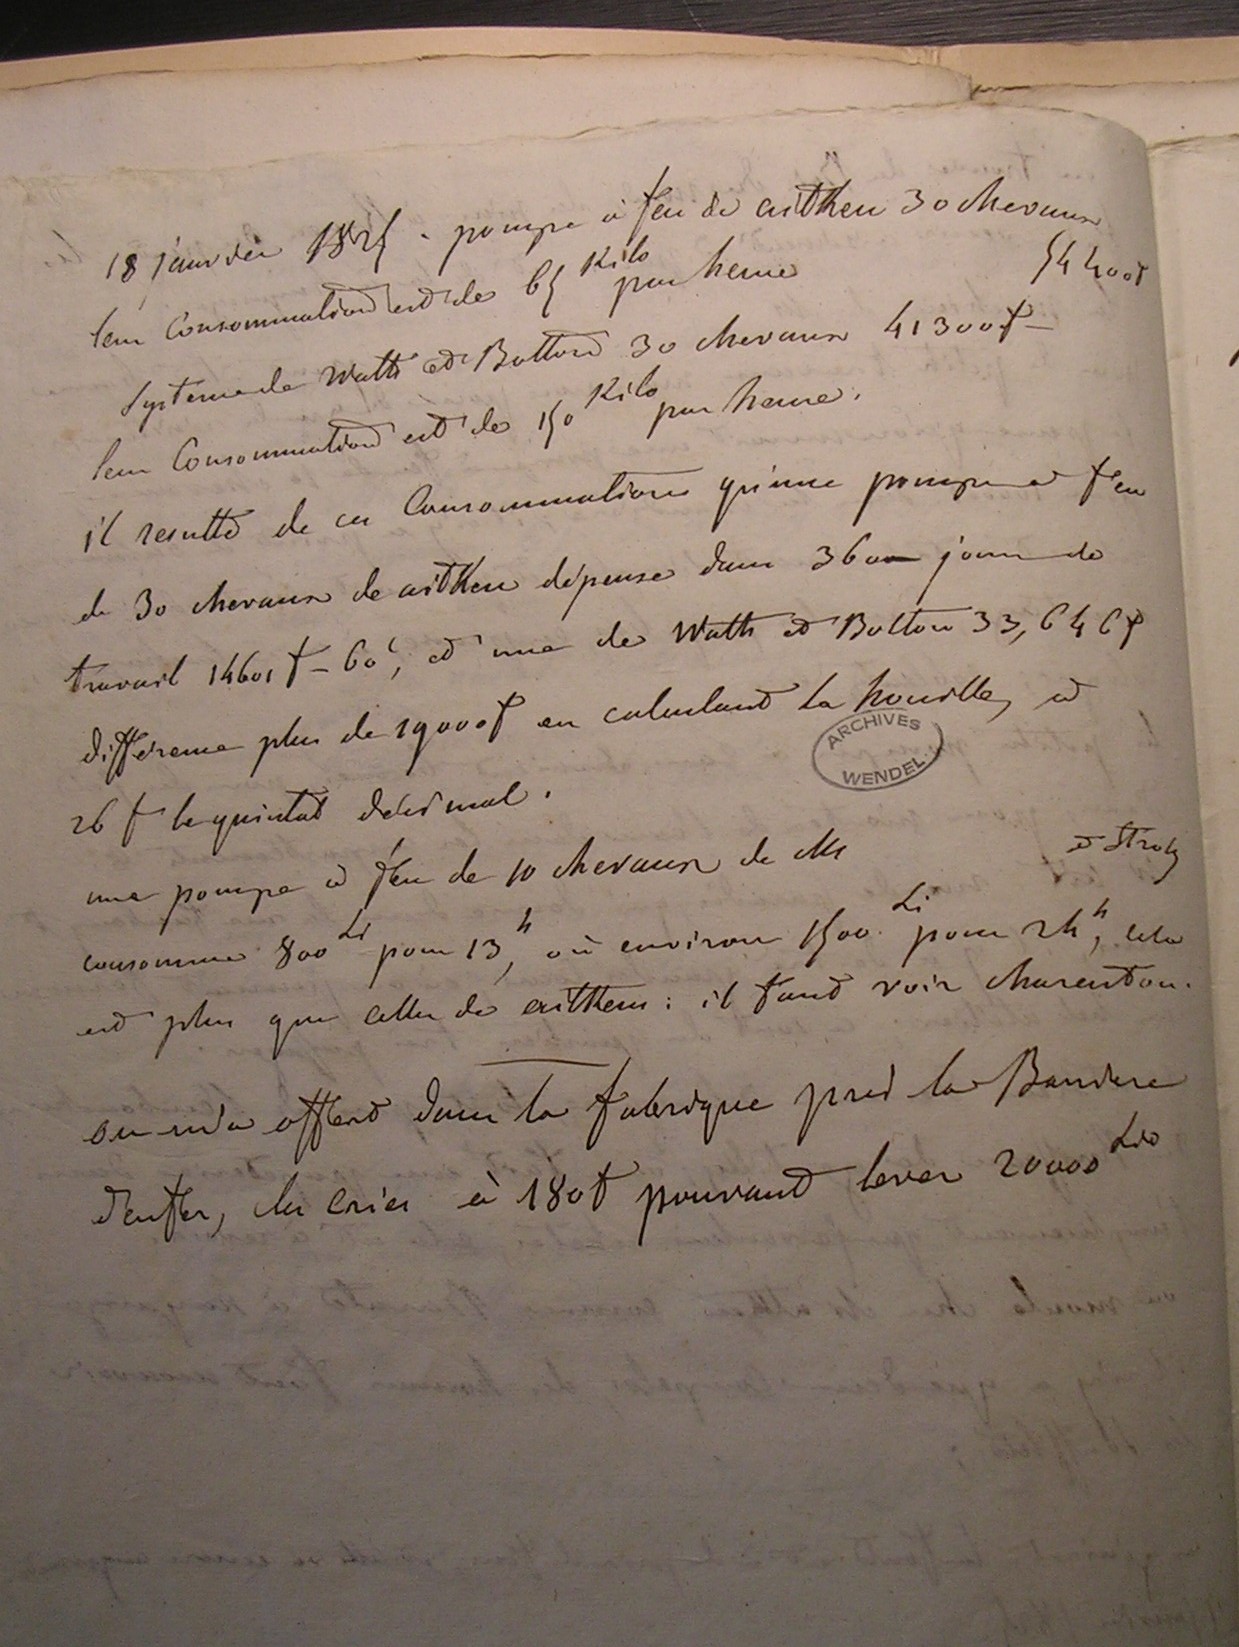 18 janvier 1825. pompe à feu de aitken 30 chevaux
54400f
leur Consommation est de 65 Kilo par heure
systeme de Watts et Bolton 30 chevaux 41300f
leur Consommation est de 150 Kilo par heure.
il resulte de ces Consommations qu'une pompe a feu
de 30 chevaux de aitken dépense dans 3600 jours de
travail 14601f-60c, et une de Watts et Bolton 33,646f
différence plus de 19000f en calculant la houille, a
26f le quintal décimal.
une pompe a feu de 10 chevaux de Mr et Strolz
consomme 800 Li pour 13h, ou environ 1500 Li pour 24h, cela
est plus que celle de aitken: il faut voir charenton.
on m'a offert dans la fabrique près la Barriere
d'enfer, des crics à 180f pouvant lever 20000 Li
ARCHIVES
WENDEL